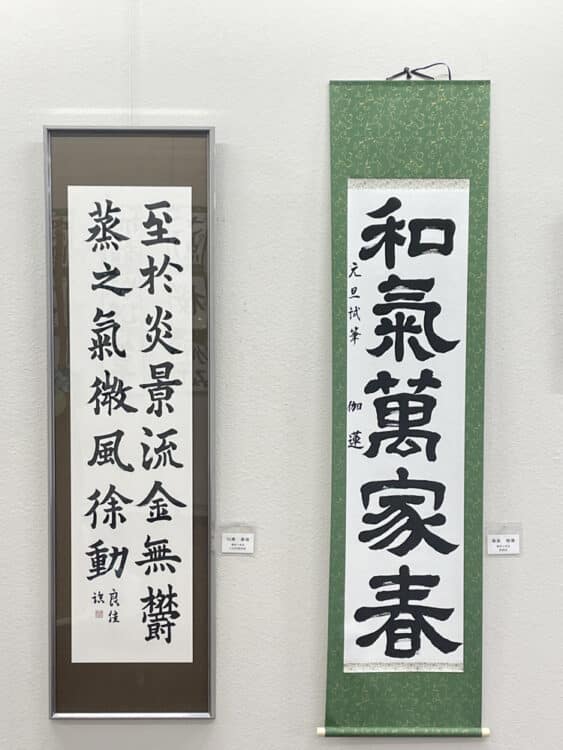 至於炎景流金無欝
蒸之氣微風徐動
良佳
和氣萬家春
元旦試筆 伽蓮